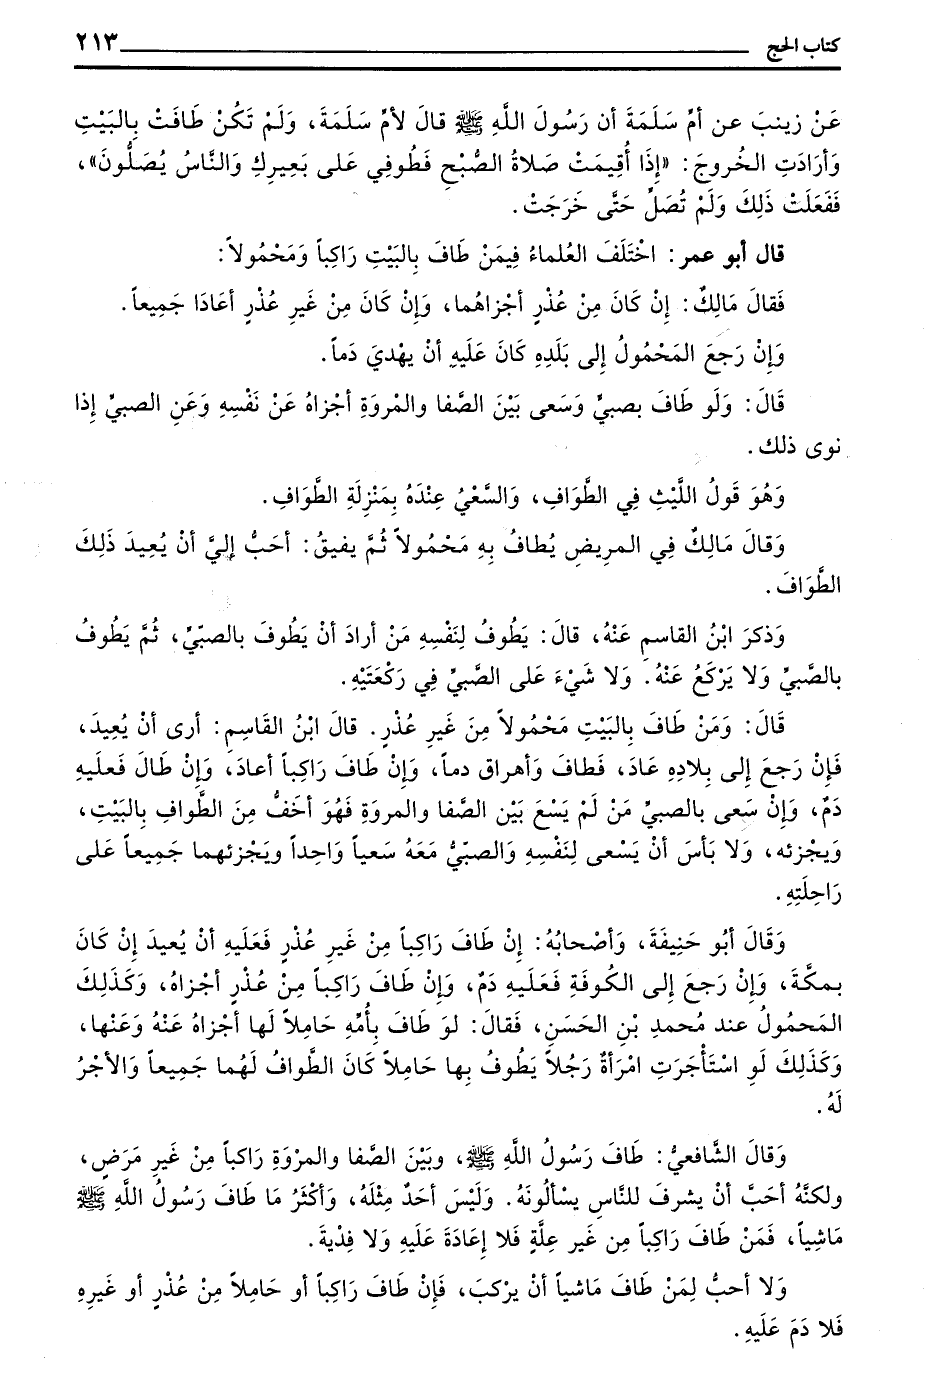 كتاب الحج ٢١٣
عَنْ زينبَ عن أمِّ سَلَمَةَ أن رَسُولَ اللَّهِ ﷺ قالَ لأمِّ سَلَمَةَ، وَلَمْ تَكُنْ طَافَتْ بِالبَيْتِ
وَأرَادَتِ الخُروجَ: «إذَا أُقِيمَتْ صَلاةُ الصُّبْحِ فَطُوفِي عَلى بَعِيرِكِ وَالنَّاسُ يُصَلُّونَ»،
فَفَعَلَتْ ذَلِكَ وَلَمْ تُصَلِّ حَتَّى خَرَجَتْ.
قال أبو عمر: اخْتَلَفَ العُلماءُ فِيمَنْ طَافَ بِالبَيْتِ رَاكِباً وَمَحْمُولاً:
فَقالَ مَالِكٌ: إنْ كَانَ مِنْ عُذْرٍ أجْزاهُما، وَإنْ كَانَ مِنْ غَيرِ عُذْرٍ أعَادَا جَمِيعاً.
وَإنْ رَجَعَ المَحْمُولُ إلى بَلَدِهِ كَانَ عَلَيهِ أنْ يهْديَ دَماً.
قَالَ: وَلَو طَافَ بصبيٍّ وَسَعى بَيْنَ الصَّفا والمْروَةِ أجْزاهُ عَنْ نَفْسِهِ وَعَنِ الصبيِّ إذا
نوى ذلك.
وَهُوَ قَولُ اللَّيْثِ فِي الطَّوافِ، وَالسَّعْيُ عِنْدَهُ بِمَنْزِلَةِ الطَّوافِ.
وَقالَ مَالِكٌ فِي المرِيضِ يُطافُ بِهِ مَحْمُولاً ثُمَّ يفيقُ: أحَبُّ إليَّ أنْ يُعِيدَ ذَلِكَ
الطَّوَافَ.
وَذكرَ ابْنُ القاسمِ عَنْهُ، قالَ: يَطُوفُ لِنَفْسِهِ مَنْ أرادَ أنْ يَطُوفَ بالصبّيِّ، ثُمَّ يَطُوفُ
بالصَّبيِّ وَلا يَرْكَعُ عَنْهُ. وَلا شَيْءَ عَلى الصَّبيِّ فِي رَكْعَتَيْهِ.
قَالَ: وَمَنْ طَافَ بِالبَيْتِ مَحْمُولاً مِنَ غَيرِ عُذْرٍ. قالَ ابْنُ القَاسِمِ: أرى أنْ يُعِيدَ،
فَإنْ رَجعَ إلى بِلادِهِ عَادَ، فَطافَ وَأهراق دماً، وَإنْ طَافَ رَاكِباً أعادَ، وَإنْ طَالَ فَعليهِ
دَمٌ، وَإنْ سَعى بالصبيِّ مَنْ لَمْ يَسْعَ بَيْن الصَّفا والمروَةِ فَهُوَ أخَفُّ مِنَ الطَّوافِ بِالبَيْتِ،
وَيجْزئه، وَلا بَأسَ أنْ يَسْعى لِنَفْسِهِ وَالصبّيُّ مَعَهُ سَعياً وَاحِداً ويَجْزئهما جَمِيعاً عَلى
رَاحِلَتِهِ.
وَقَالَ أبُو حَنِيفَةَ، وَأصْحابُهُ: إنْ طَافَ رَاكِباً مِنْ غَيرِ عُذْرٍ فَعَلَيهِ أنْ يُعيدَ إنْ كَانَ
بمكَّةَ، وَإنْ رَجعَ إلى الكُوفَةِ فَعَليهِ دَمٌ، وَإنْ طَافَ رَاكِباً مِنْ عُذْرٍ أجْزاهُ، وَكَذَلِكَ
المَحمُولُ عند مُحمدِ بْنِ الحَسَنِ، فَقالَ: لوَ طَافَ بِأُمِّهِ حَامِلاً لَها أجْزاهُ عَنْهُ وَعَنْها،
وَكَذَلِكَ لَو اسْتَأْجَرَتِ امْرَأةٌ رَجُلاً يَطُوفُ بِها حَامِلاً كَانَ الطَّوافُ لَهُما جَمِيعاً وَالأجْرُ
لَهُ.
وَقَالَ الشَّافعيُّ: طَافَ رَسُولُ اللَّهِ ﷺ، وبَيْنَ الصَّفا والمرْوَةِ رَاكِباً مِنْ غَيرِ مَرَضٍ،
ولكنَّهُ أحَبَّ أنْ يشرفَ للنَّاسِ يسألُونَهُ. وَلَيْسَ أحَدٌ مِثْلَهُ، وَأكْثَرُ مَا طَافَ رَسُولُ اللَّهِ ﷺ
مَاشِياً، فَمَنْ طَافَ رَاكِباً مِن غَير عِلَّةٍ فَلا إعَادَةَ عَلَيهِ وَلا فِدْيةَ.
وَلا أحبُّ لِمَنْ طَافَ مَاشياً أنْ يرْكبَ، فَإنْ طَافَ رَاكِباً أو حَامِلاً مِنْ عُذْرٍ أو غَيرِهِ
فَلا دَمَ عَلَيهِ.